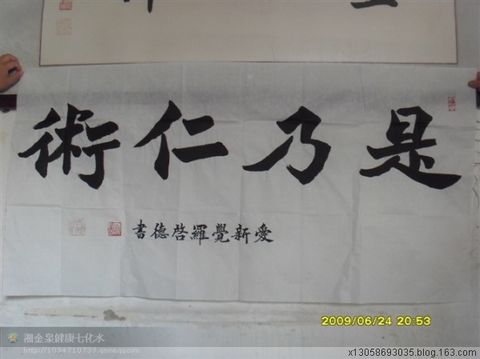 是乃仁術
愛新覺羅啓德書
2009/06/24 20:53
湘金泉健康七化水
http://1034710739.qzone.qq.com
x13058693035.blog.163.com